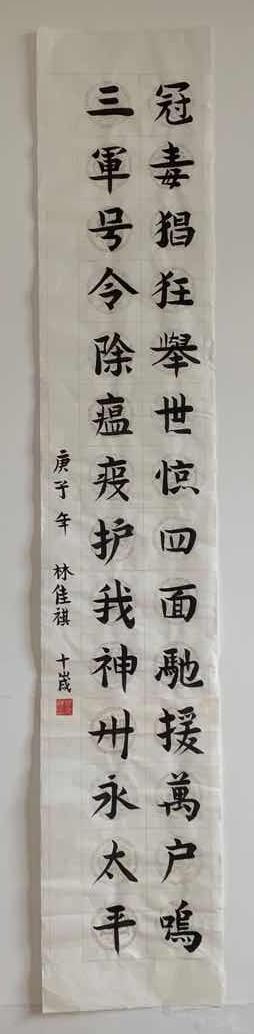 冠毒猖狂舉世惊四面馳援萬户鳴
三軍号令除瘟疫护我神州永太平
庚子年 林佳祺 十歲